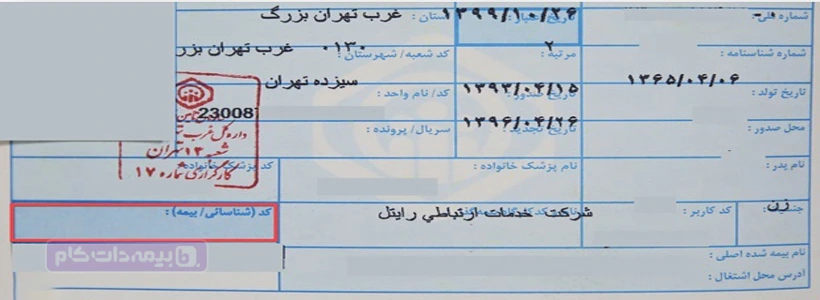 شماره ملی : تاریخ اعتبار : ۱۳۹۹/۱۰/۲۶ استان : غرب تهران بزرگ
شماره شناسنامه : مرتبه : ۲ کد شعبه/ شهرستان : ۰۱۳۰ غرب تهران بزر
تاریخ تولد : ۱۳۶۵/۰۴/۰۶ تاریخ صدور : ۱۳۹۳/۰۴/۱۵ کد/ نام واحد : سیزده تهران
محل صدور : تاریخ تجدید : ۱۳۹۶/۰۴/۲۶ سریال/ پرونده : 23008
اداره کل غرب
شعبه ۱۳ تهران
کارگزاری شماره ۱۷۰
نام پدر : نام پزشک خانواده : کد پزشک خانواده
جنسیت : زن کد کاربر : شرکت خدمات ارتباطي رایتل کد (شناسائی/ بیمه) :
نام بیمه شده اصلی :
بیمه دات کام
آدرس محل اشتغال :